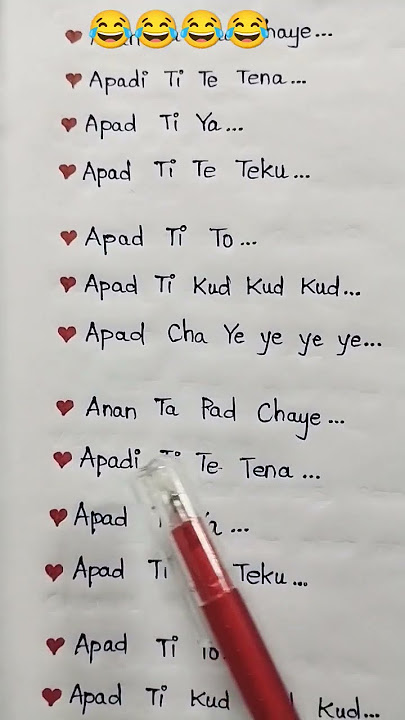 haye...
Apadi Ti Te Tena...
Apad Ti Ya...
Apad Ti Te Teku...
Apad Ti To...
Apad Ti Kud Kud Kud...
Apad Cha Ye ye ye ye...
Anan Ta Pad Chaye...
Apadi Ti Te Tena...
Apad ...
Apad Ti Teku...
Apad Ti To
Apad Ti Kud Kud...